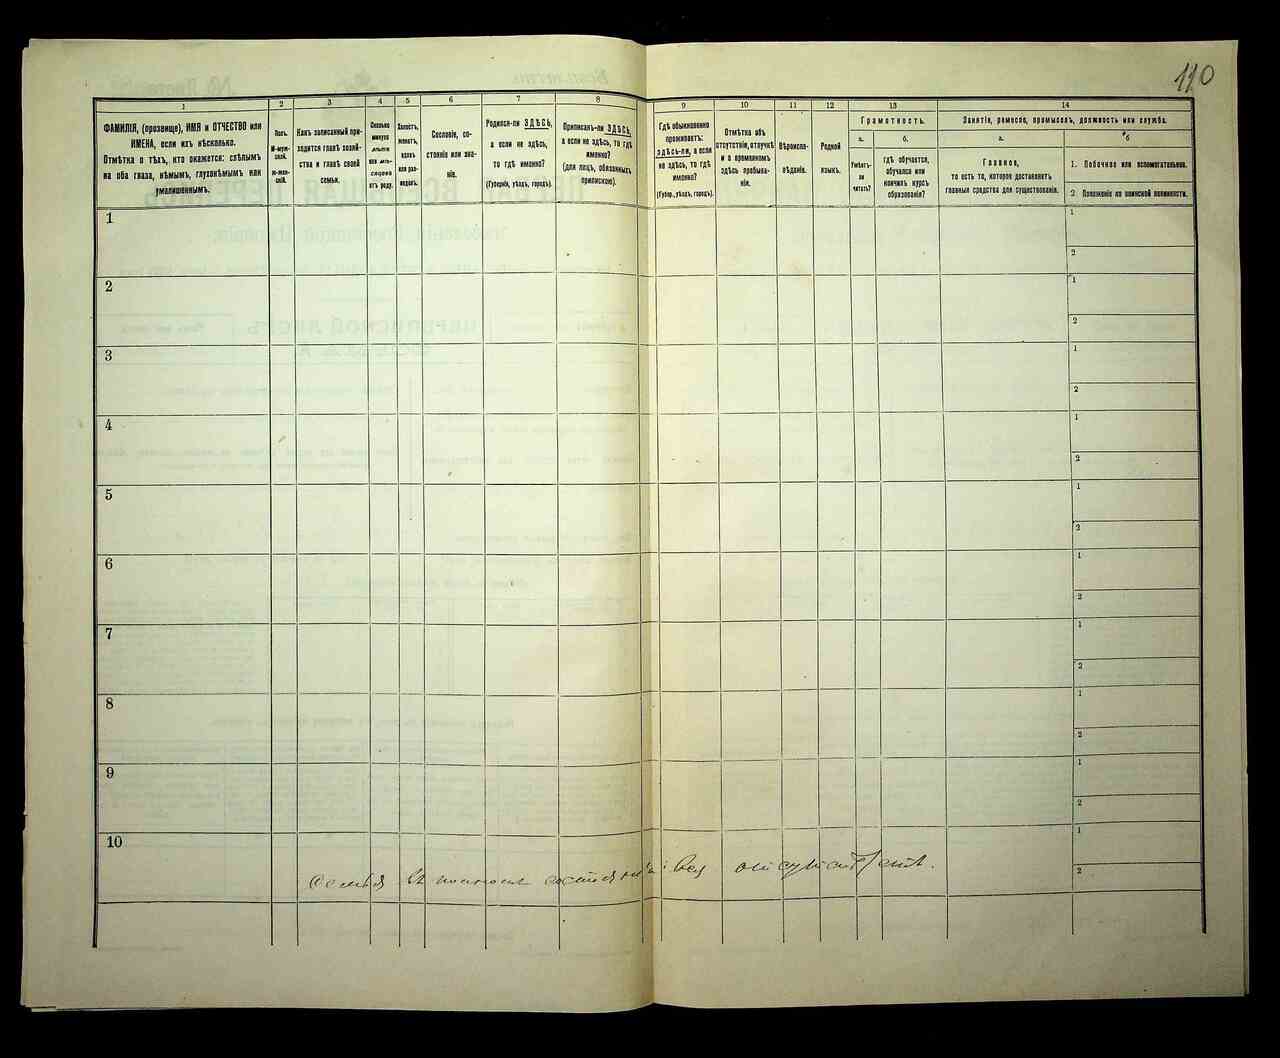 110
1
2
3
4
5
6
7
8
9
10
11
12
13
14
ФАМИЛІЯ, (прозвище), ИМЯ и ОТЧЕСТВО или
ИМЕНА, если ихъ нѣсколько.
Отмѣтка о тѣхъ, кто окажется: слѣпымъ
на оба глаза, нѣмымъ, глухонѣмымъ или
умалишеннымъ.
Полъ.
М-муж-
ской.
ж-жен-
скій.
Какъ записанный при-
ходится главѣ хозяй-
ства и главѣ своей
семьи.
Сколько
минуло
лѣтъ
или мѣ-
сяцевъ
отъ роду.
Холостъ,
женатъ,
вдовъ
или раз-
веденъ.
Сословіе, со-
стояніе или зва-
ніе.
Родился-ли ЗДѢСЬ,
а если не здѣсь,
то гдѣ именно?
(Губернія, уѣздъ, городъ).
Приписанъ-ли ЗДѢСЬ,
а если не здѣсь, то гдѣ
именно?
(для лицъ, обязанныхъ
припискою).
Гдѣ обыкновенно
проживаетъ:
здѣсь-ли, а если
не здѣсь, то гдѣ
именно?
(Губер., уѣздъ, городъ).
Отмѣтка объ
отсутствіи, отлучкѣ
и о временномъ
здѣсь пребыва-
ніи.
Вѣроиспо-
вѣданіе.
Родной
языкъ.
Грамотность.
а.
б.
Умѣетъ-
ли
читать?
гдѣ обучается,
обучался или
кончилъ курсъ
образованія?
Занятіе, ремесло, промыселъ, должность или служба.
а.
б
Главное,
то есть то, которое доставляетъ
главныя средства для существованія.
1. Побочное или вспомогательное.
2 Положеніе по воинской повинности.
1
1
2
2
1
2
3
1
2
4
1
2
5
1
2
6
1
2
7
1
2
8
1
2
9
1
2
10
1
2
семья
вся